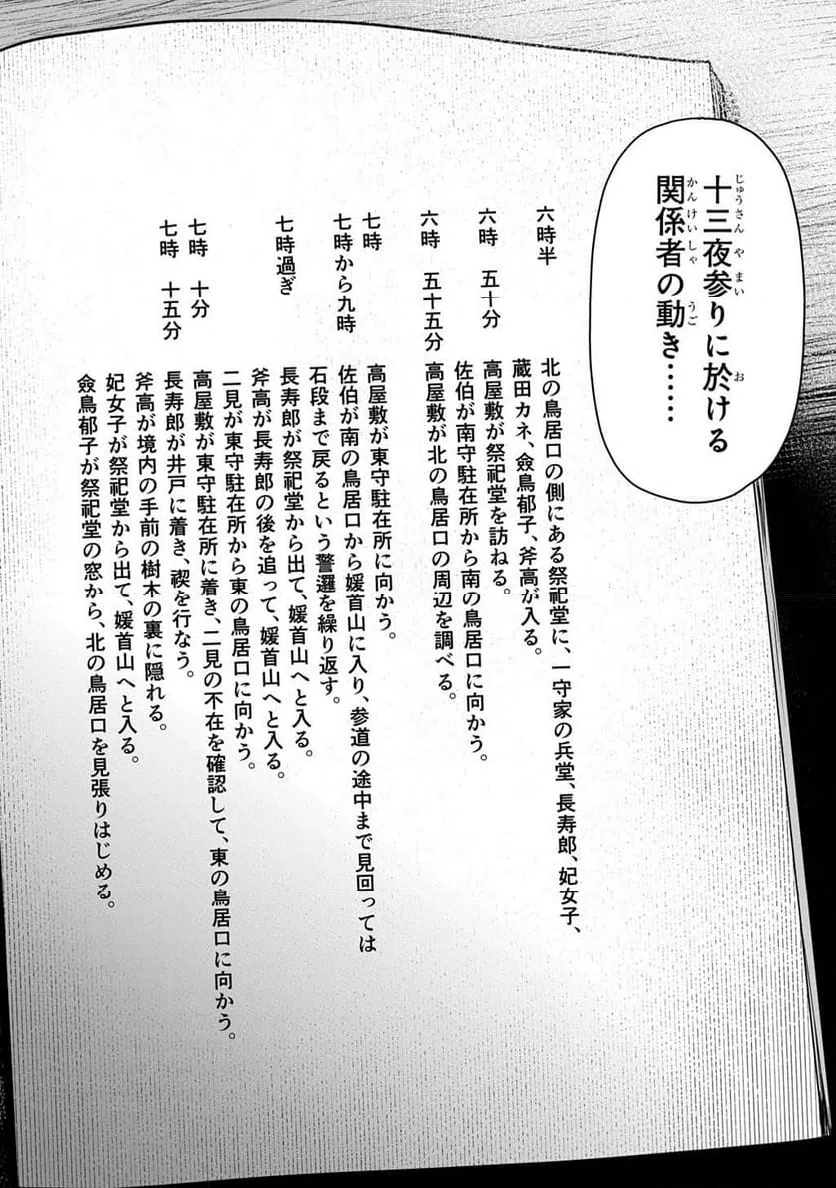 十三夜参りに於ける
関係者の動き……
六時半
北の鳥居口の側にある祭祀堂に、一守家の兵堂、長寿郎、妃女子、
蔵田カネ、僉鳥郁子、斧高が入る。
六時　五十分
高屋敷が祭祀堂を訪ねる。
佐伯が南守駐在所から南の鳥居口に向かう。
六時　五十五分
高屋敷が北の鳥居口の周辺を調べる。
七時
高屋敷が東守駐在所に向かう。
七時から九時
佐伯が南の鳥居口から媛首山に入り、参道の途中まで見回っては
石段まで戻るという警邏を繰り返す。
七時過ぎ
長寿郎が祭祀堂から出て、媛首山へと入る。
斧高が長寿郎の後を追って、媛首山へと入る。
二見が東守駐在所から東の鳥居口に向かう。
七時　十分
高屋敷が東守駐在所に着き、二見の不在を確認して、東の鳥居口に向かう。
七時　十五分
長寿郎が井戸に着き、禊を行なう。
斧高が境内の手前の樹木の裏に隠れる。
妃女子が祭祀堂から出て、媛首山へと入る。
僉鳥郁子が祭祀堂の窓から、北の鳥居口を見張りはじめる。